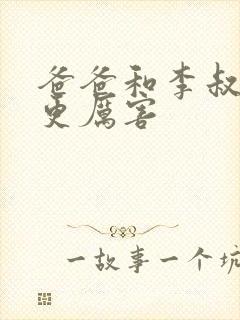 爸爸和李叔
更厲害
一故事一个坑